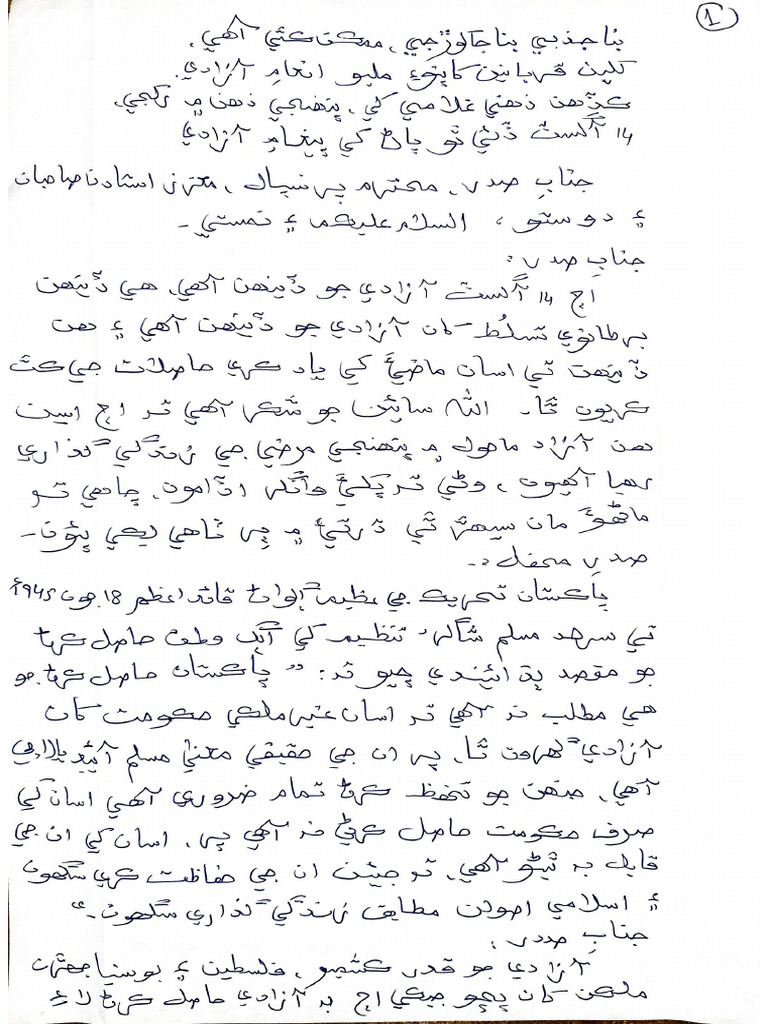 1
بنا جذبي بنا جاکوڙ جي، ممڪن ڪٿي آهي،
ڪلين قربانين کانپوءِ مليو انعامِ آزادي.
ڪڏهن ذهني غلامي کي، پنهنجي ذهن ۾ رکجي،
14 آگسٽ ڏئي ٿو پاڻ کي پيغامِ آزادي
جنابِ صدر، محترم پرنسپال، معزز استادنا صاحبان
۽ دوستو، السلام عليڪم ۽ نمستي۔
جنابِ صدر:
اڄ 14 آگسٽ آزادي جو ڏينهن آهي، هي ڏينهن
برطانوي تسلُط کان آزادي جو ڏينهن آهي ۽ هن
ڏينهن تي اسان ماضيءَ کي ياد ڪري حاصلات جي ڪٿ
ڪريون ٿا۔ الله سائين جو شڪر آهي تہ اڄ اسين
هن آزاد ماحول ۾ پنهنجي مرضي جي زندگي گذاري
رهيا آهيون، وڻي تہ پکيءَ وانگر اڏامون، چاهي تہ
ماڻهوءَ مان سيهڙ ٿي ڌرتيءَ ۾ چر ٺاهي ليڪي پئون۔
صدرِ محفل:۔
پاڪستان تحريڪ جي عظيم اڳواڻ قائد اعظم 18 جون 1945ع
تي سرحد مسلم شاگرد تنظيم کي آڳ وطن حاصل ڪرڻ
جو مقصد ٻڌائيندي چيو تہ: ”پاڪستان حاصل ڪرڻ جو
هي مطلب نہ آهي تہ اسان غير ملڪي حڪومت کان
آزادي گهرون ٿا، پر ان جي حقيقي معنيٰ مسلم آئيڊيلاجي
آهي، جنهن جو تحفظ ڪرڻ تمام ضروري آهي اسان کي
صرف حڪومت حاصل ڪرڻي نہ آهي پر، اسان کي ان جي
قابل بہ ٿيڻو آهي، تہ جيئن ان جي حفاظت ڪري سگهون
۽ اسلامي اصولن مطابق زندگي گذاري سگهون۔“
جنابِ صدر،
آزادي جو قدر ڪشمير، فلسطين ۽ بوسنيا جهڙن
ملڪن کان پڇو جيڪي اڄ بہ آزادي حاصل ڪرڻ لاءِ